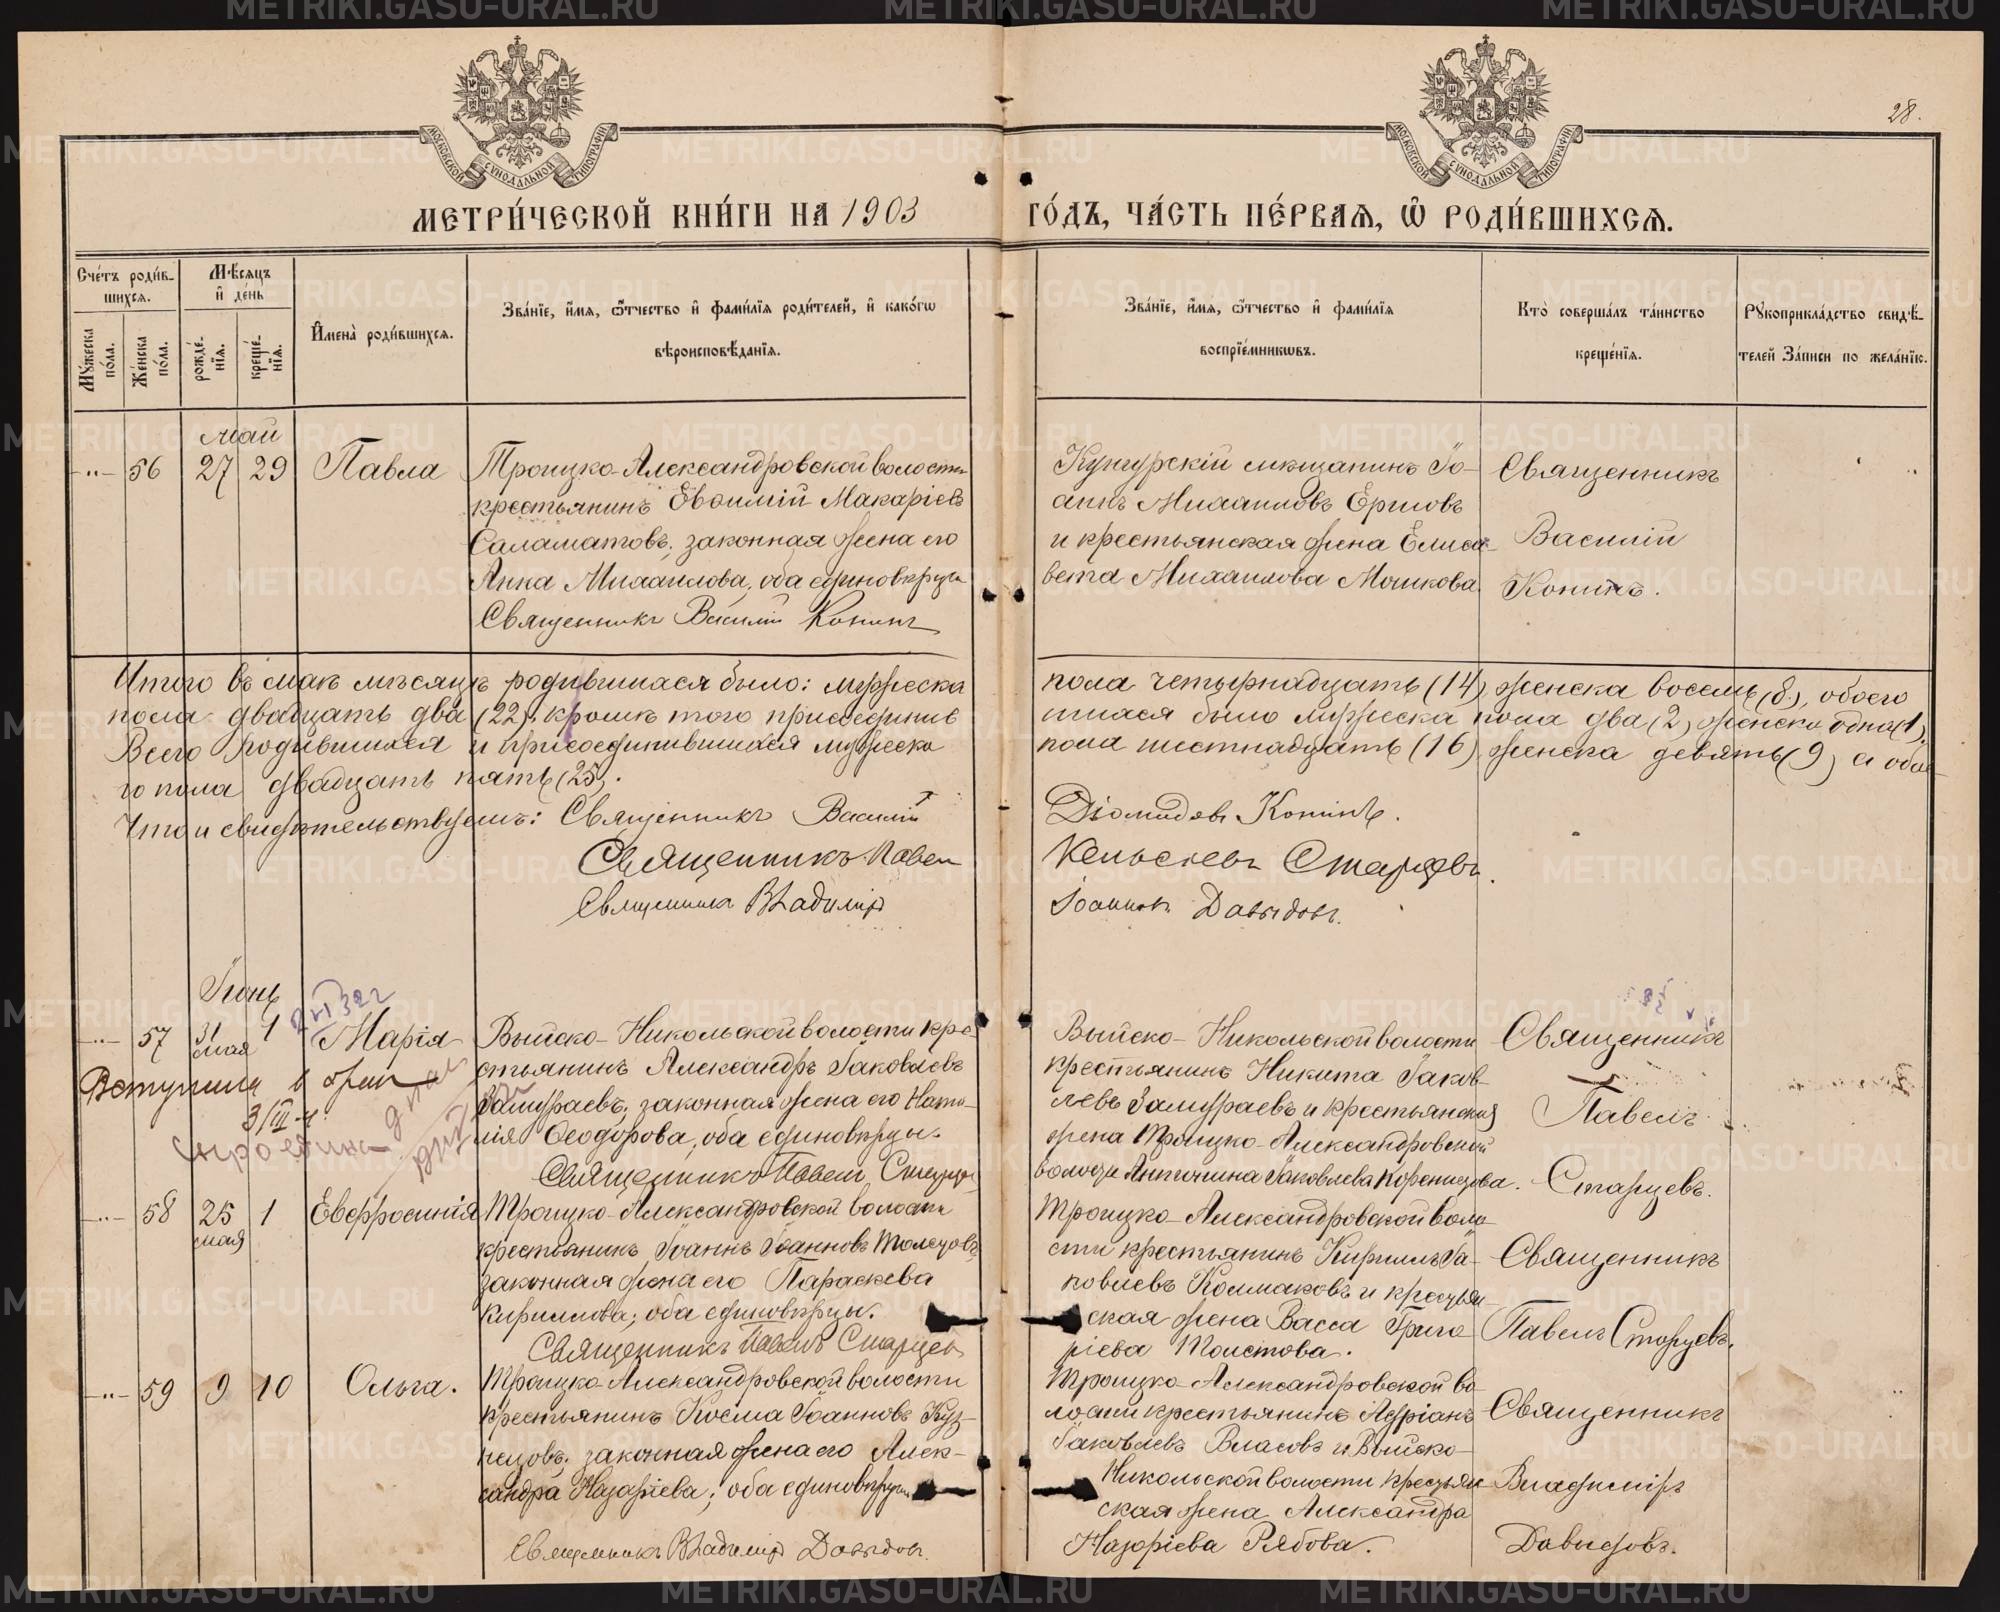 28.
МОСКОВСКОЙ СѴНОДАЛЬНОЙ ТИПОГРАФІИ
МОСКОВСКОЙ СѴНОДАЛЬНОЙ ТИПОГРАФІИ
МЕТРИ́ЧЕСКОЙ КНИ́ГИ НА 1903
ГО́ДЪ, ЧА́СТЬ ПЕ́РВАѦ, Ѽ РОДИ́ВШИХСѦ.
Сче́тъ роди́в-
шихсѧ.
Мꙋ́жеска по́ла.
Же́нска по́ла.
Мѣ́сѧцъ
и҆ де́нь
рожде́-
нїѧ.
креще́-
нїѧ.
И҆мена̀ роди́вшихсѧ.
Зва́нїе, и҆́мѧ, ѻ҆́тчество и҆ фамѝлїѧ роди́телей, и҆ како́гѡ
вѣроисповѣ́данїѧ.
Зва́нїе, и҆́мѧ, ѻ҆́тчество и҆ фамѝлїѧ
воспрїе́мникѡвъ.
Кто̀ соверша́лъ та́инство
креще́нїѧ.
Рꙋкоприкла́дство свидѣ́-
телей за́писи по жела́нїю.
Май
-"- 56 27 29 Павла
Троицко-Александровской волости
крестьянинъ Евѳимій Макаріевъ
Саламатовъ, законная жена его
Анна Михаилова, оба единовѣрцы
Священникъ Василій Конинъ
Кунгурскій мѣщанинъ Іо-
аннъ Михаиловъ Ершовъ
и крестьянская жена Елиса-
вета Михаилова Мошкова
Священникъ
Василій
Конинъ.
Итого въ маѣ мѣсяцѣ родившихся было: мужеска
пола четырнадцать (14), женска восемь (8), обоего
пола двадцать два (22); кромѣ того присоединив
шихся было мужеска пола два (2), женска одна (1).
Всего родившихся и присоединившихся мужеска
пола шестнадцать (16) женска девять (9) а обое-
го пола двадцать пять (25).
Что и свидѣтельствуемъ: Священникъ Василій
Діомидовъ Конинъ.
Священникъ Павел
Кельсіевъ Старцевъ.
Священникъ Владиміръ
Іоанновъ Давыдовъ.
Іюнь
-"- 57 31 мая 1 Марія
Вступила в брак
3/III-
Выйско-Никольской волости кре-
стьянинъ Александръ Іаковлевъ
Замураевъ, законная жена его Ната-
лія Ѳеодорова, оба единовѣрцы.
Священникъ Павелъ Старцевъ
Выйско-Никольской волости
крестьянинъ Никита Іаков-
левъ Замураевъ и крестьянская
жена Троицко-Александровской
волости Антонина Іаковлева
Священникъ
Павелъ
Старцевъ.
-"- 58 25 мая 1 Евфросинія
Троицко-Александровской волости
крестьянинъ Іоаннъ Іоанновъ
законная жена его Параскева
Кириллова; оба единовѣрцы.
Священникъ Павелъ Старцевъ
Троицко-Александровской воло-
сти крестьянинъ Кириллъ Іа-
ковлевъ Колмаковъ и крестьян-
ская жена Васса Григо
ріева Толстова.
Священникъ
Павелъ Старцевъ.
-"- 59 9 10 Ольга.
Троицко-Александровской волости
крестьянинъ Косма Іоанновъ Куз-
нецовъ, законная жена его Алек-
сандра Назаріева; оба единовѣрцы
Священникъ Владиміръ Давыдовъ.
Троицко-Александровской во-
лости крестьянинъ Адріанъ
Іаковлевъ Власовъ и Выйско-
Никольской волости крестьян
ская жена Александра
Назаріева Рябова.
Священникъ
Владиміръ
Давыдовъ.
METRIKI.GASO-URAL.RU